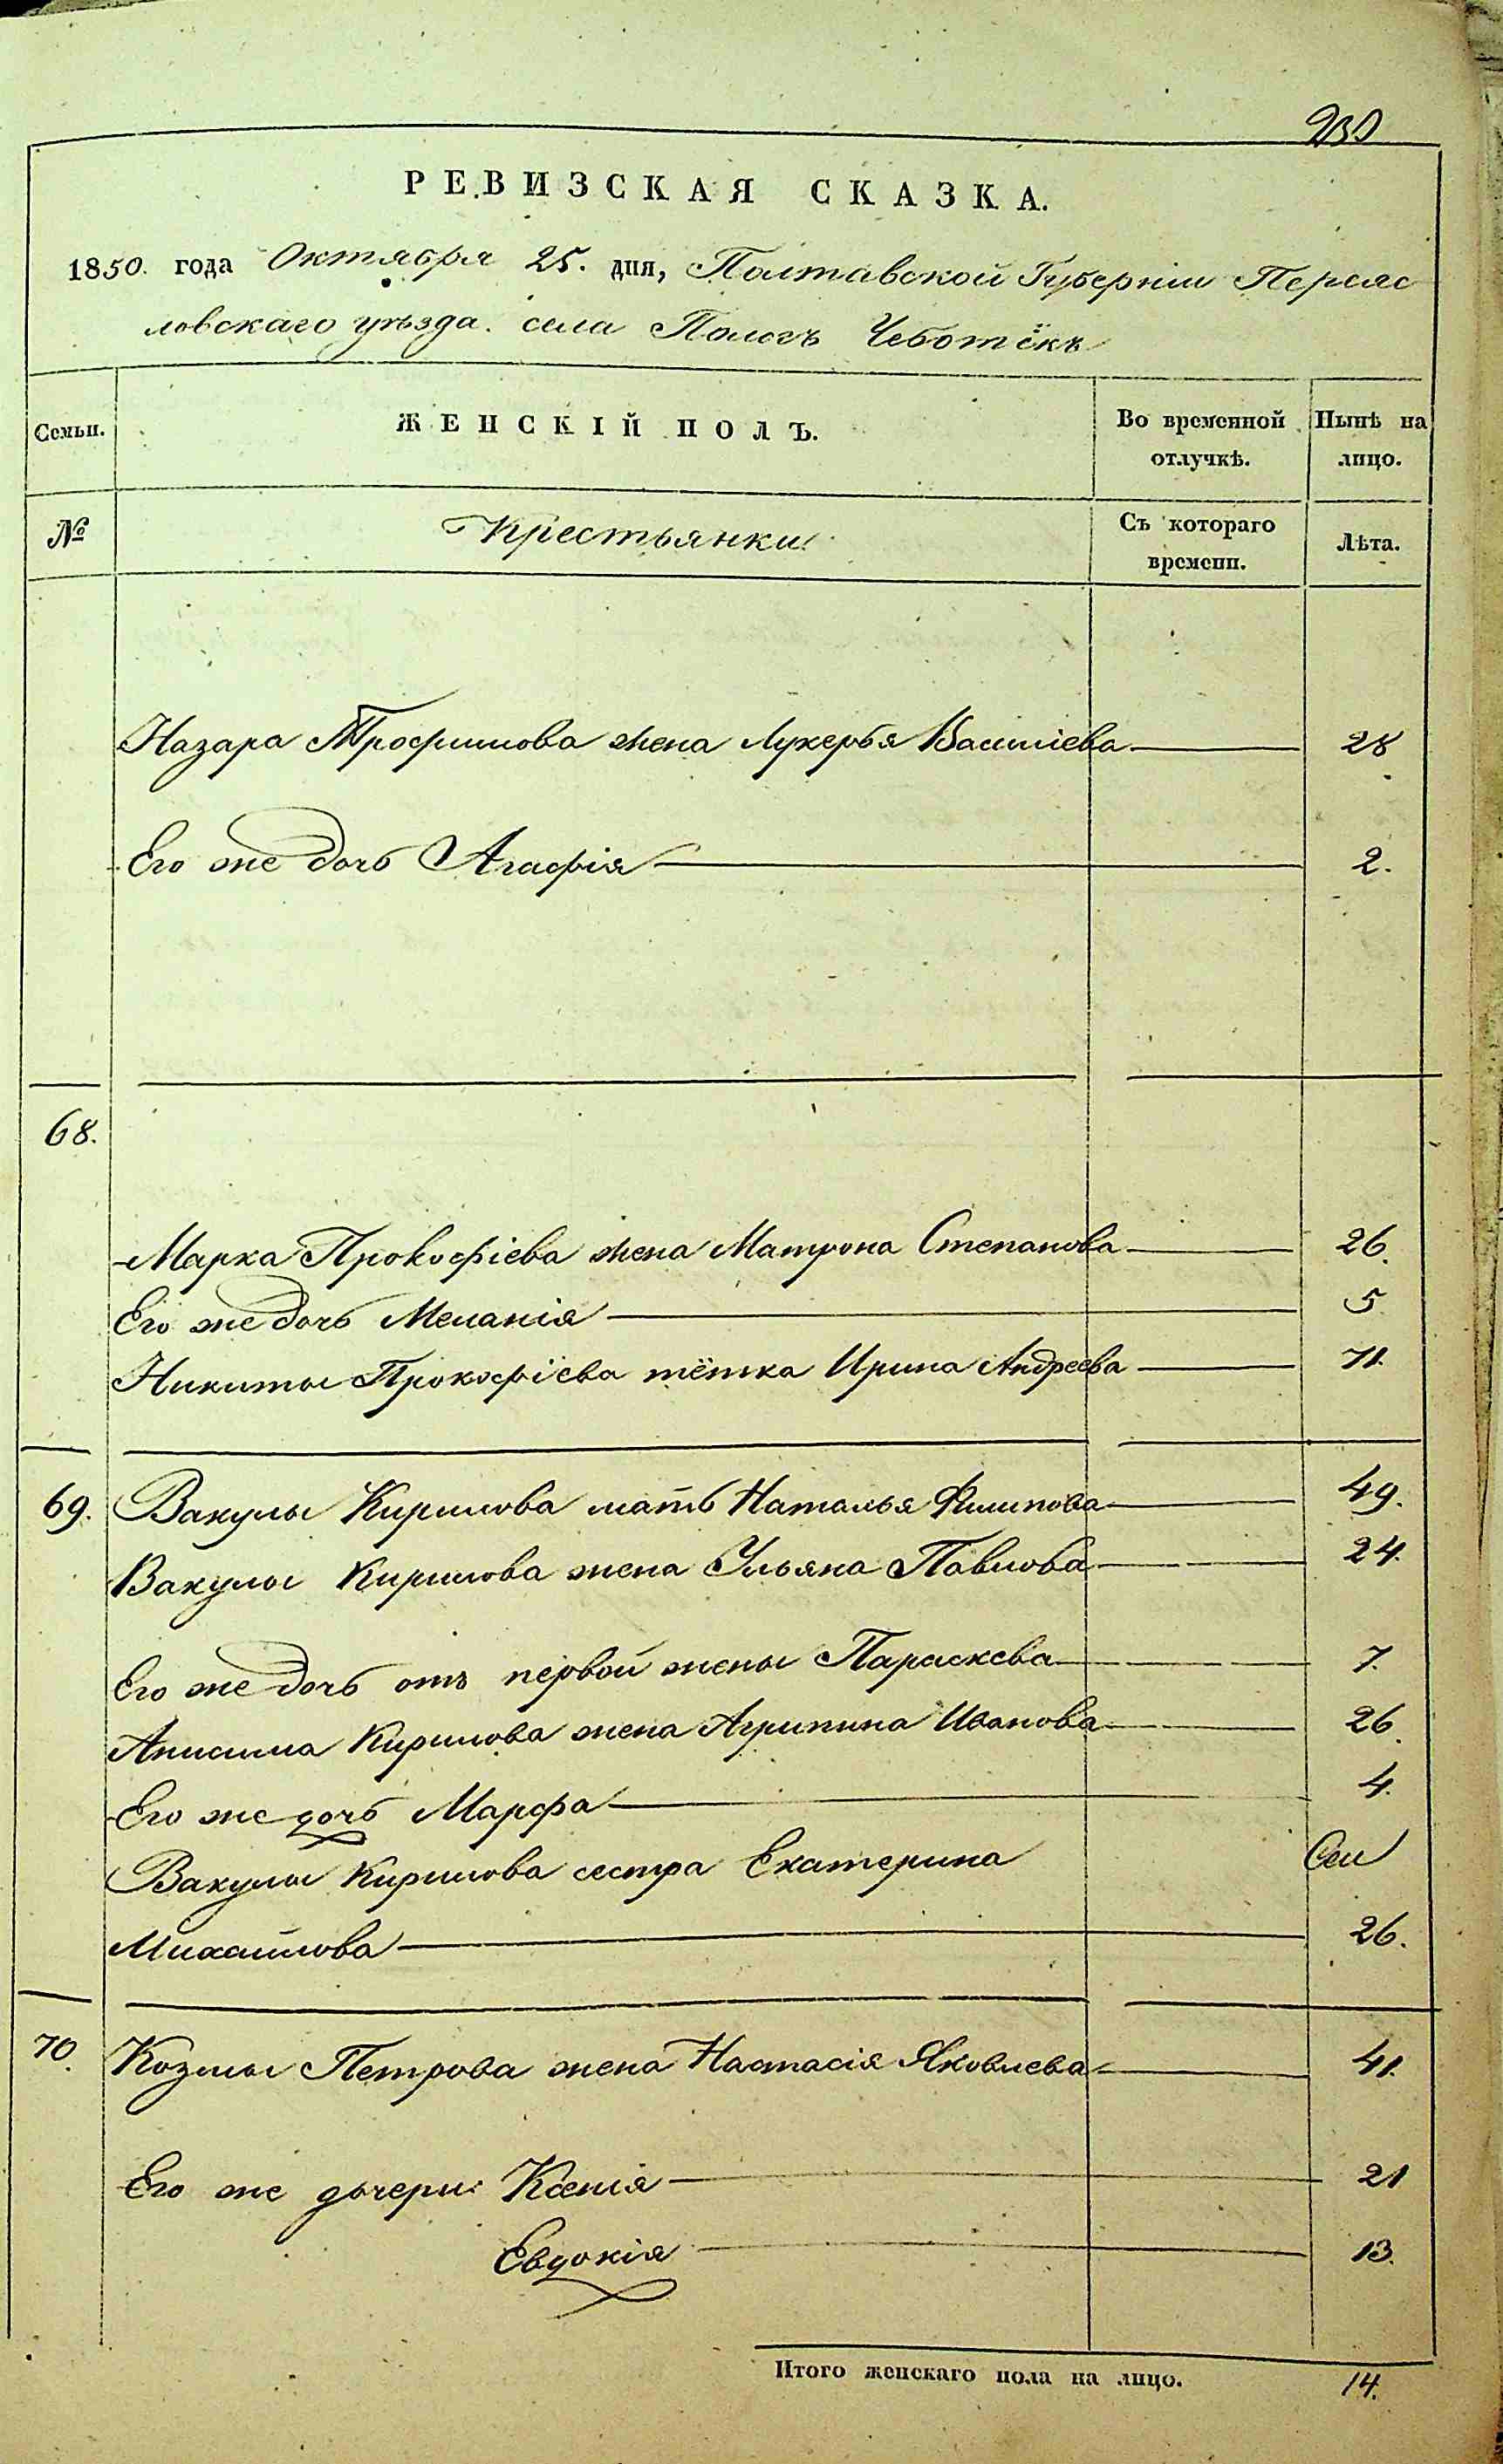 230
РЕВИЗСКАЯ СКАЗКА.
1850. года Октября 25. дня, Полтавской Губерніи Переяс
ловскаго уѣзда. села Пологъ Чебот
Семьи.
ЖЕНСКІЙ ПОЛЪ.
Во временной отлучкѣ.
Нынѣ на лицо.
№
Крестьянки
Съ котораго времени.
Лѣта.
Назара Трофимова жена Лукерья Василіева 28
Его же дочь Агафія 2.
68.
Марка Прокофіева жена Матрона Степанова 26.
Его же дочь Меланія 5
Никиты Прокофіева тётка Ирина Андреева 71.
69. Вакулы Кирилова мать Наталья Филипова 49.
Вакулы Кирилова жена Ульяна Павлова 24.
Его же дочь отъ первой жены Параскева 7.
Анисима Кирилова жена Агрипина Иванова 26.
Его же дочь Марфа 4.
Вакулы Кирилова сестра Екатерина
Михайлова 26.
70. Козмы Петрова жена Настасія Яковлева 41.
Его же дочери: Ксенія 21
Евдокія 13.
Итого женскаго пола на лицо. 14.